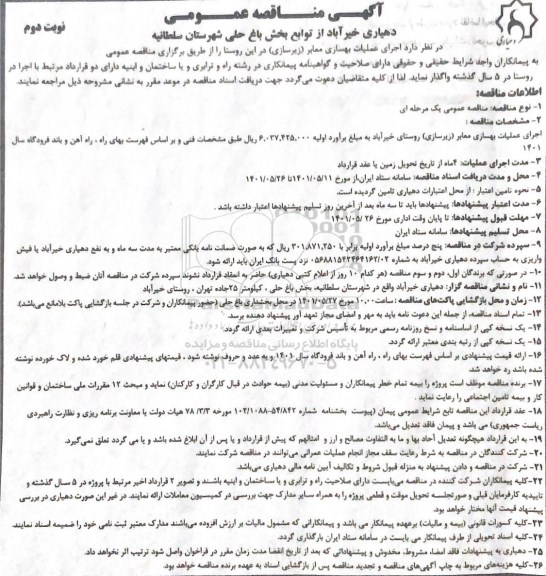 آگهی مناقصه عمومی
نوبت دوم
دهیاری خیرآباد از توابع بخش باغ حلی شهرستان سلطانیه
در نظر دارد اجرای عملیات بهسازی معابر (زیرسازی) در این روستا را از طریق برگزاری مناقصه عمومی
به پیمانکاران واجد شرایط حقیقی و حقوقی دارای صلاحیت و گواهینامه پیمانکاری در رشته راه و ترابری و یا ساختمان و ابنیه دارای دو قرارداد مرتبط با اجرا در
روستا در ۵ سال گذشته واگذار نماید. لذا از کلیه متقاضیان دعوت می‌گردد جهت دریافت اسناد مناقصه در موعد مقرر به نشانی مشروحه ذیل مراجعه نمایند.
اطلاعات مناقصه:
۱- نوع مناقصه: مناقصه عمومی یک مرحله ای
۲- مشخصات مناقصه :
اجرای عملیات بهسازی معابر (زیرسازی) روستای خیرآباد به مبلغ برآورد اولیه ۶,۰۳۷,۴۲۵,۰۰۰ ریال طبق مشخصات فنی و بر اساس فهرست بهای راه ، راه آهن و باند فرودگاه سال
۱۴۰۱
۳- مدت اجرای عملیات: ۴ماه از تاریخ تحویل زمین یا عقد قرارداد
۴- محل و مدت دریافت اسناد مناقصه: سامانه ستاد ایران،از مورخ ۱۴۰۱/۰۵/۱۱تا ۱۴۰۱/۰۵/۲۶
۵- نحوه تامین اعتبار : از محل اعتبارات دهیاری تامین گردیده است.
۶- مدت اعتبار پیشنهادها: پیشنهادها باید تا سه ماه بعد از آخرین روز تسلیم پیشنهادها اعتبار داشته باشد .
۷- مهلت قبول پیشنهادها: تا پایان وقت اداری مورخ ۲۶ /۱۴۰۱/۰۵
۸- محل تسلیم پیشنهادها: سامانه ستاد ایران
۹- سپرده شرکت در مناقصه: پنج درصد مبلغ برآورد اولیه برابر با ۳۰۱,۸۷۱,۲۵۰ ریال که به صورت ضمانت نامه بانکی معتبر به مدت سه ماه و به نفع دهیاری خیرآباد یا فیش
واریزی به حساب سپرده دهیاری خیرآباد به شماره نزد پست بانک ایران باید ارائه شود.
۱۰- در صورتی که برندگان اول، دوم و سوم مناقصه (هر کدام ۱۰ روز از اعلام کتبی دهیاری) حاضر به انعقاد قرارداد نشوند سپرده شرکت در مناقصه آنان ضبط و وصول خواهد شد.
۱۱- نام و نشانی مناقصه گزار: دهیاری خیرآباد واقع در شهرستان سلطانیه، بخش باغ حلی ، کیلومتر ۲۵جاده تهران ، روستای خیرآباد
۱۲- زمان و محل بازگشایی پاکت‌های مناقصه : ساعت ۱۰:۰۰ مورخ ۱۴۰۱/۰۵/۲۷ در محل بخشداری باغ حلی (حضور پیمانکاران و شرکت در جلسه بازگشایی پاکت بلامانع می‌باشد).
۱۳- تمام اسناد مناقصه، از جمله این دعوت نامه باید به مهر و امضای مجاز تعهد آور پیشنهاد دهنده برسد.
۱۴- یک نسخه کپی از اساسنامه و نسخ روزنامه رسمی مربوط به تأسیس شرکت و تغییرات بعدی ارائه گردد.
۱۵- یک نسخه کپی از رتبه بندی معتبر ارائه گردد.
۱۶- ارائه قیمت پیشنهادی بر اساس فهرست بهای راه ، راه آهن و باند فرودگاه سال ۱۴۰۱ و به عدد و حروف نوشته شود ، قیمتهای پیشنهادی قلم خورد شده و لاک خورده نوشته
شده باشد رد خواهد شد.
۱۷- برنده مناقصه موظف است پروژه را بیمه تمام خطر پیمانکاران و مسئولیت مدنی (بیمه حوادث در قبال کارگران و کارکنان) نماید و مبحث ۱۲ مقررات ملی ساختمان و قوانین
کار و بیمه تامین اجتماعی را رعایت نماید .
۱۸- عقد قرارداد این مناقصه تابع شرایط عمومی پیمان (پیوست بخشنامه شماره ۵۴/۸۴۲-۱۰۲/۱۰۸۸ مورخه ۷۸/۳/۳ هیات دولت یا معاونت برنامه ریزی و نظارت راهبردی
ریاست جمهوری) می باشد و پیمان فاقد تعدیل می‌باشد.
۱۹- به این قرارداد هیچگونه تعدیل آحاد بها و ما به التفاوت مصالح و ارز و امثالهم که پیش از قرارداد و یا پس از آن ابلاغ شده باشد و یا می گردد تعلق نمی‌گیرد.
۲۰- شرکت کنندگان در مناقصه به شرط رعایت سقف مجاز انجام عملیات عمرانی می‌توانند در مناقصه شرکت نمایند.
۲۱- شرکت در مناقصه و دادن پیشنهاد به منزله قبول شروط و تکالیف آیین نامه مالی دهیاری می‌باشد.
۲۲-کلیه پیمانکاران شرکت کننده در مناقصه می‌بایست دارای صلاحیت راه و ترابری و یا ساختمان و ابنیه باشند و تصویر ۲ قرارداد اخیر مرتبط با پروژه در ۵ سال گذشته و
تاییدیه کارفرمایان قبلی و صورتجلسه تحویل موقت و قطعی پروژه را به همراه سایر مدارک جهت بررسی در کمیسیون معاملات ارائه نمایند. در غیر این صورت دهیاری در بررسی
پیشنهاد قیمت آنها مختار خواهد بود.
۲۳-کلیه کسورات قانونی (بیمه و مالیات) برعهده پیمانکار می باشد و پیمانکارانی که مشمول مالیات بر ارزش افزوده می‌باشند مدارک معتبر ثبت نامی خود را ضمیمه اسناد نمایند.
۲۴-کلیه اسناد تحویلی از طرف پیمانکار می بایست در سامانه ستاد ایران بارگذاری گردد.
۲۵- دهیاری به پیشنهادات فاقد امضا، مشروط، مخدوش و پیشنهاداتی که بعد از تاریخ انقضا مدت زمان مقرر در فراخوان واصل شود ترتیب اثر نخواهد داد.
۲۶-کلیه هزینه‌های مربوط به چاپ آگهی‌های مناقصه و تجدید مناقصه پس از بازگشایی اسناد به عهده برنده مناقصه خواهد بود.